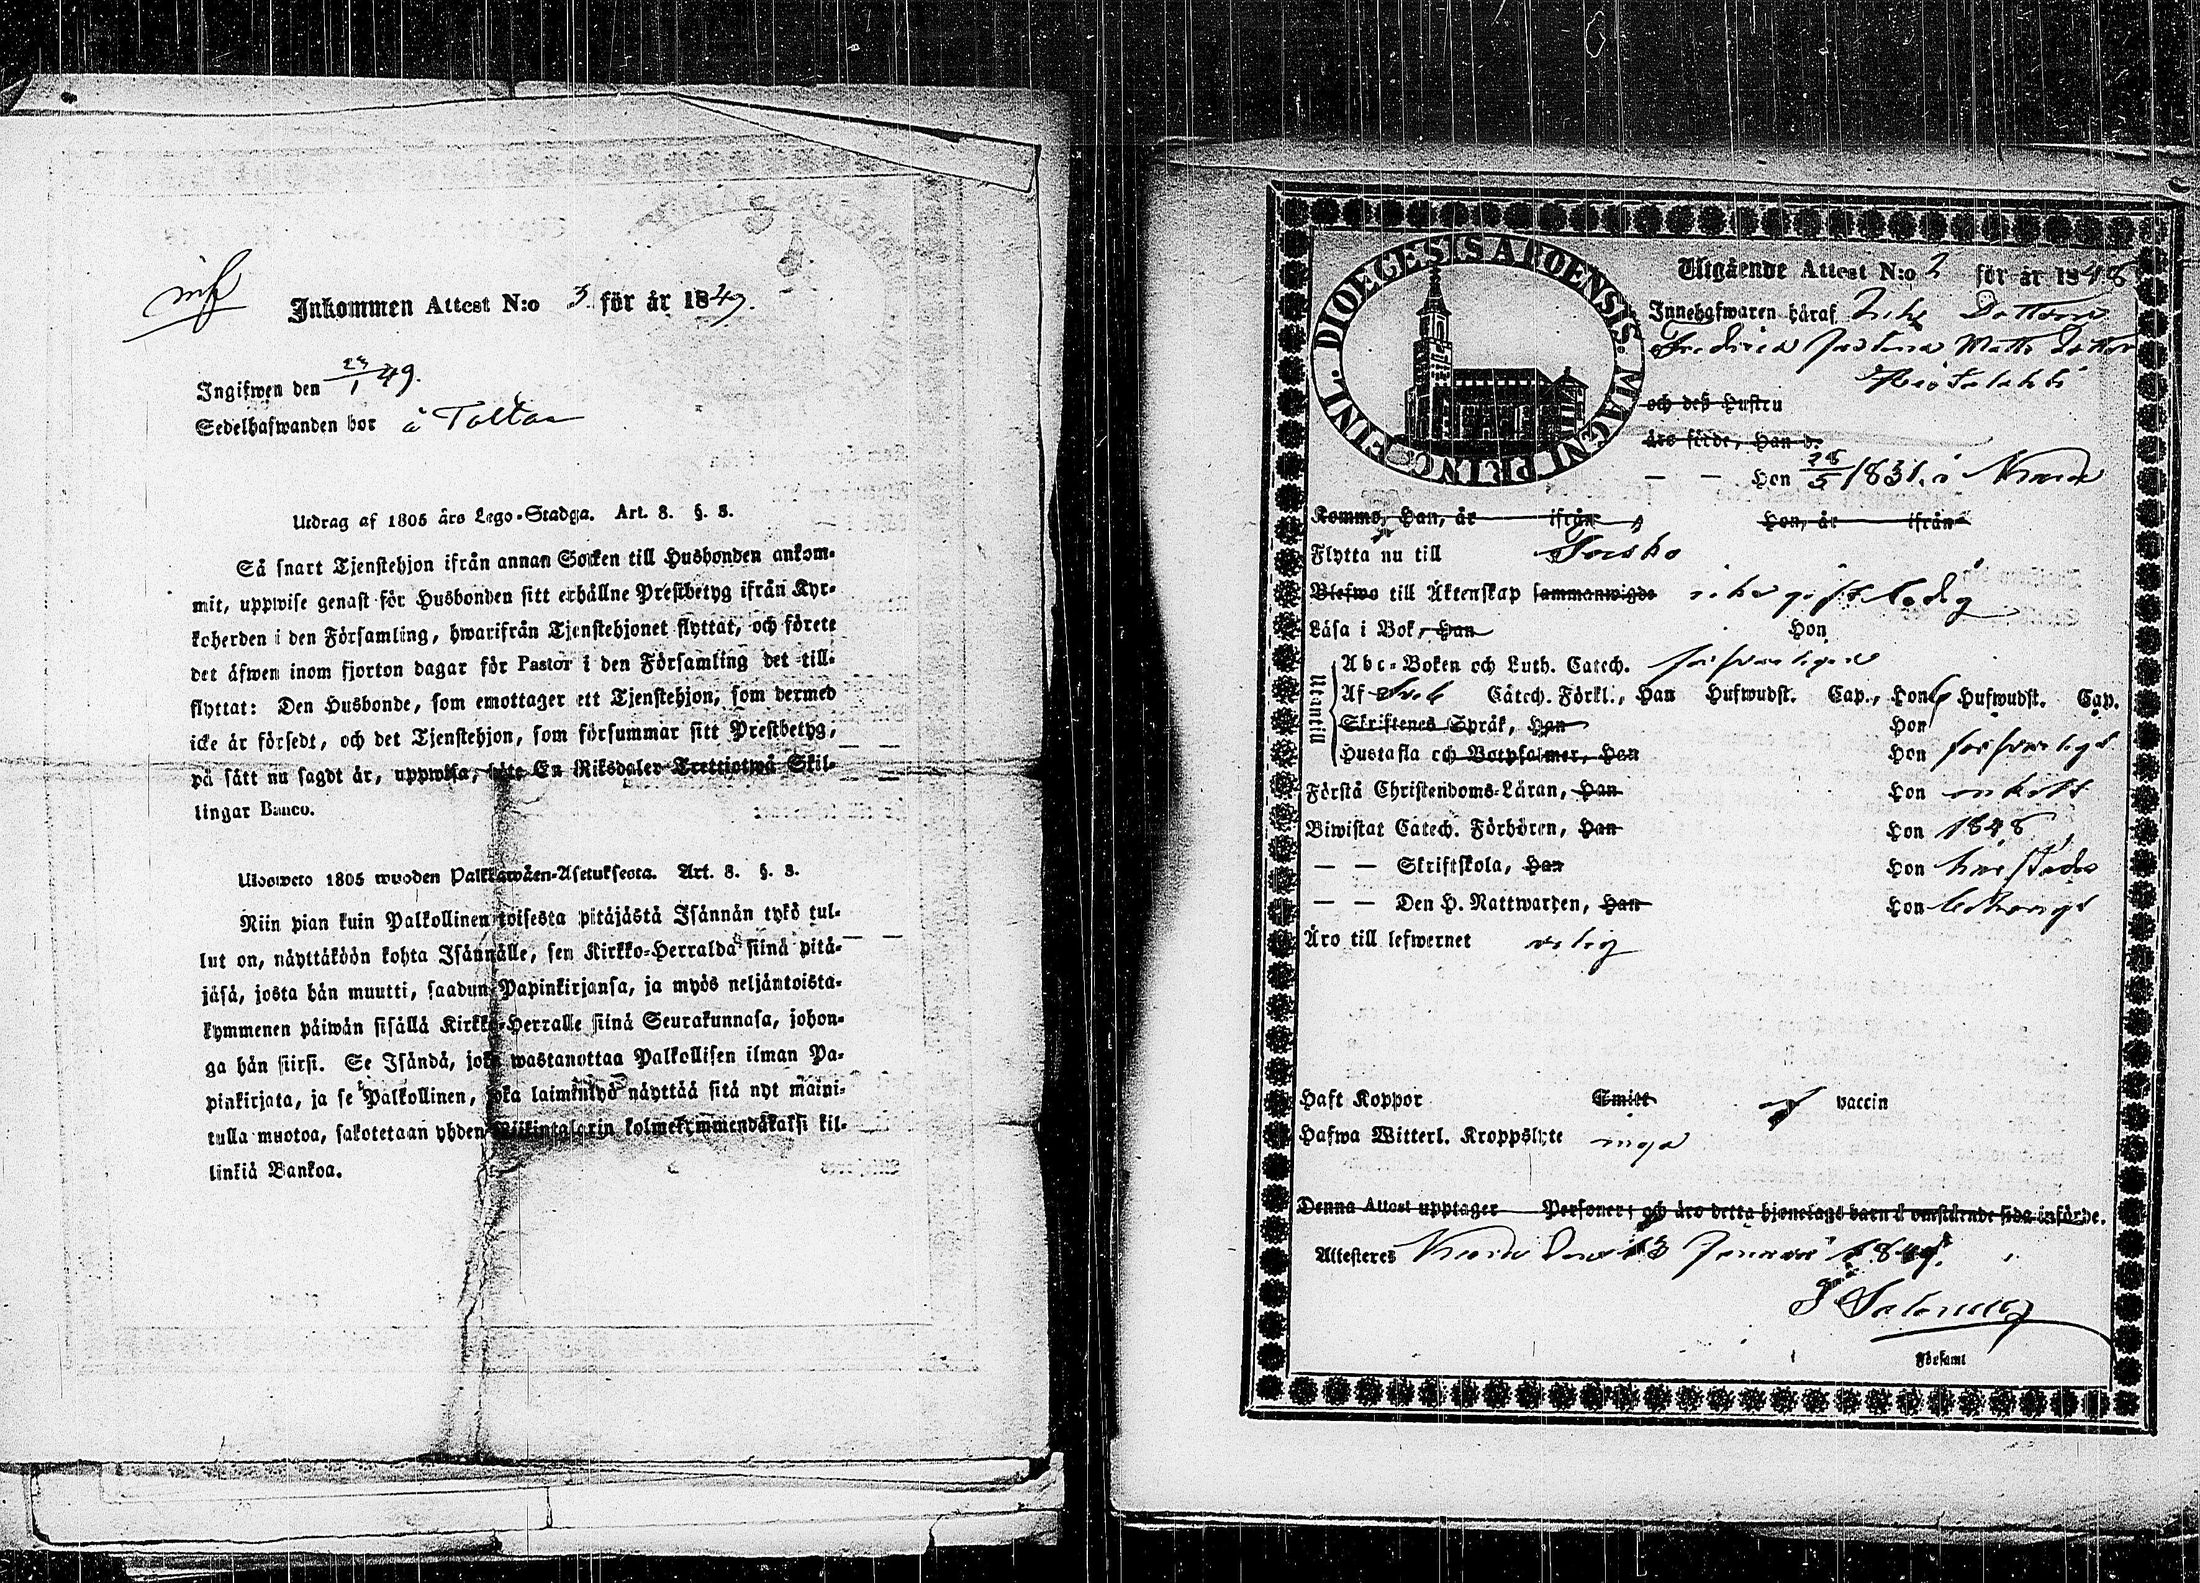 Inkommen Attest N:o 3 för år 1849.
Ingifwen den 23/1 49.
Sedelhafwanden bor å
Utdrag af 1805 års Lego-Stadga. Art. 8. §. 3.
Så snart Tjenstehjon ifrån annan Socken till Husbonden ankom-
mit, uppwise genast för Husbonden sitt erhållne Prestbetyg ifrån Kyr-
koherden i den Församling, hwarifrån Tjenstehjonet flyttat, och förete
det äfwen inom fjorton dagar för Pastor i den Församling det till-
flyttat: Den Husbonde, som emottager ett Tjenstehjon, som dermed
icke är försedt, och det Tjenstehjon, som försummar sitt Prestbetyg,
på sätt nu sagdt är, uppwisa, böte En Riksdaler Trettiotwå Skil-
lingar Banco.
Ulosweto 1805 wuoden Palkkawäen-Asetuksesta. Art. 8. §. 3.
Niin pian kuin Palkollinen toisesta pitäjästä Isännän tykö tul-
lut on, näyttäköön kohta Isännälle, sen Kirkko-Herralda siinä pitä-
jäsä, josta hän muutti, saadun Papinkirjansa, ja myös neljäntoista-
kymmenen päiwän sisällä Kirkko-Herralle siinä Seurakunnasa, johon-
ga hän siirsi. Se Isändä, joka wastanottaa Palkollisen ilman Pa-
pinkirjata, ja se Palkollinen, joka laiminlyö näyttää sitä nyt maini-
tulla muotoa, sakotetaan yhden Riikintalarin kolmekymmendäkaksi kil-
linkiä Bankoa.
DIOECESIS ABOENSIS. MAGNI PRINC. FINL.
Utgående Attest N:o 2 för år 1848
Innehafwaren häraf Dottern
Fredrica Justina Matts Dotter
och deß Hustru
äro födde, Han d.
— — Hon 28/5 1831. i
Komne, Han, år ifrån Hon, år ifrån
Flytta nu till
Blefwo till Äktenskap sammanwigde ledig
Läsa i Bok, Han Hon
Utantill
Abc-Boken och Luth. Catech. försvarligen
Af Sveb Catech. Förkl., Han Hufwudst. Cap., Hon 6 Hufwudst. Cap.
Skriftenes Språk, Han Hon
Hustafla och Botpsalmer, Han Hon försvarligt
Förstå Christendoms-Läran, Han Hon enkelt
Biwistat Catech. Förhören, Han Hon 1848
— — Skriftskola, Han Hon härstädes
— — Den H. Nattwarden, Han Hon begångt
Äro till lefwernet
Haft Koppor Smitt vaccin
Hafwa Witterl. Kroppslyte inga
Denna Attest upptager Personer; och äro detta hjonelags barn å omstående sida införde.
Attesteres den 13 Januari 1849.